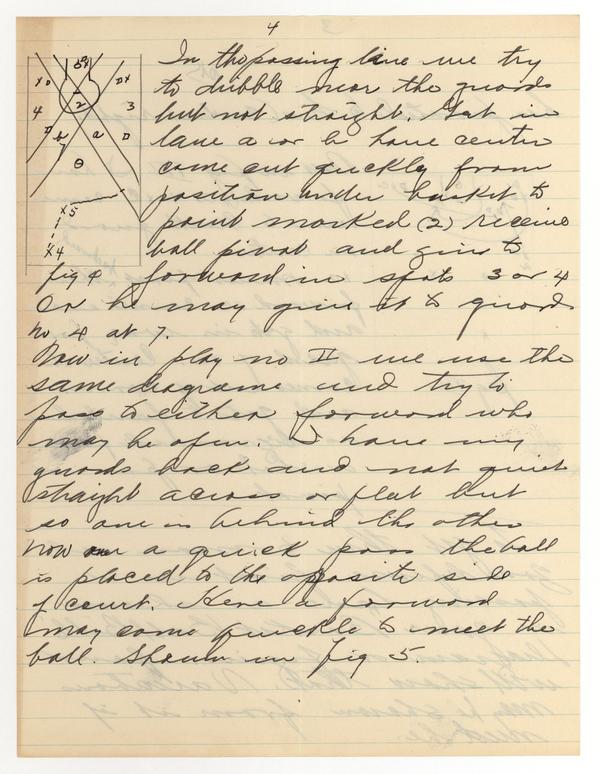 4
In the passing line we try
to dribble near the guards
but not straight. Get in
lane a or b have center
come out quickly from
position under basket to
point marked (2) receive
ball pivot and give to
fig 4 forward in spots 3 or 4
Or he may give it to guards
no. 4 at 7.
Now in play no II we use the
same diagrame and try to
pass to either forward who
may be open. I have my
guards back and not quiet
straight across or flat but
so one is behind the other
now on a quick pass the ball
is placed to the opposite side
of court. Here a forward
may come quickly to meet the
ball. Shown in fig 5.
5x
XO
OX
2
4
3
b
a
7
X5
X4